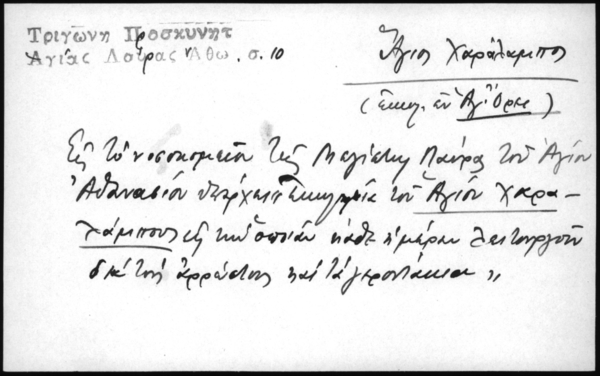 Τριγώνη Προσκυνητ
Αγίας Λαύρας Άθω, σ. 10
Ἅγιος Χαράλαμπος
(ἐκκλ. ἐν Ἁγ. Ὄρει)
Εἰς τὸ νοσοκομεῖον τῆς Μεγίστης Λαύρας τοῦ Ἁγίου
Ἀθανασίου ὑπάρχει "ἐκκλησία τοῦ Ἁγίου Χαρα-
λάμπους εἰς τὴν ὁποίαν κάθε ἡμέραν λειτουργοῦν
διὰ τοὺς ἀρρώστους καὶ τὰ γεροντάκια"